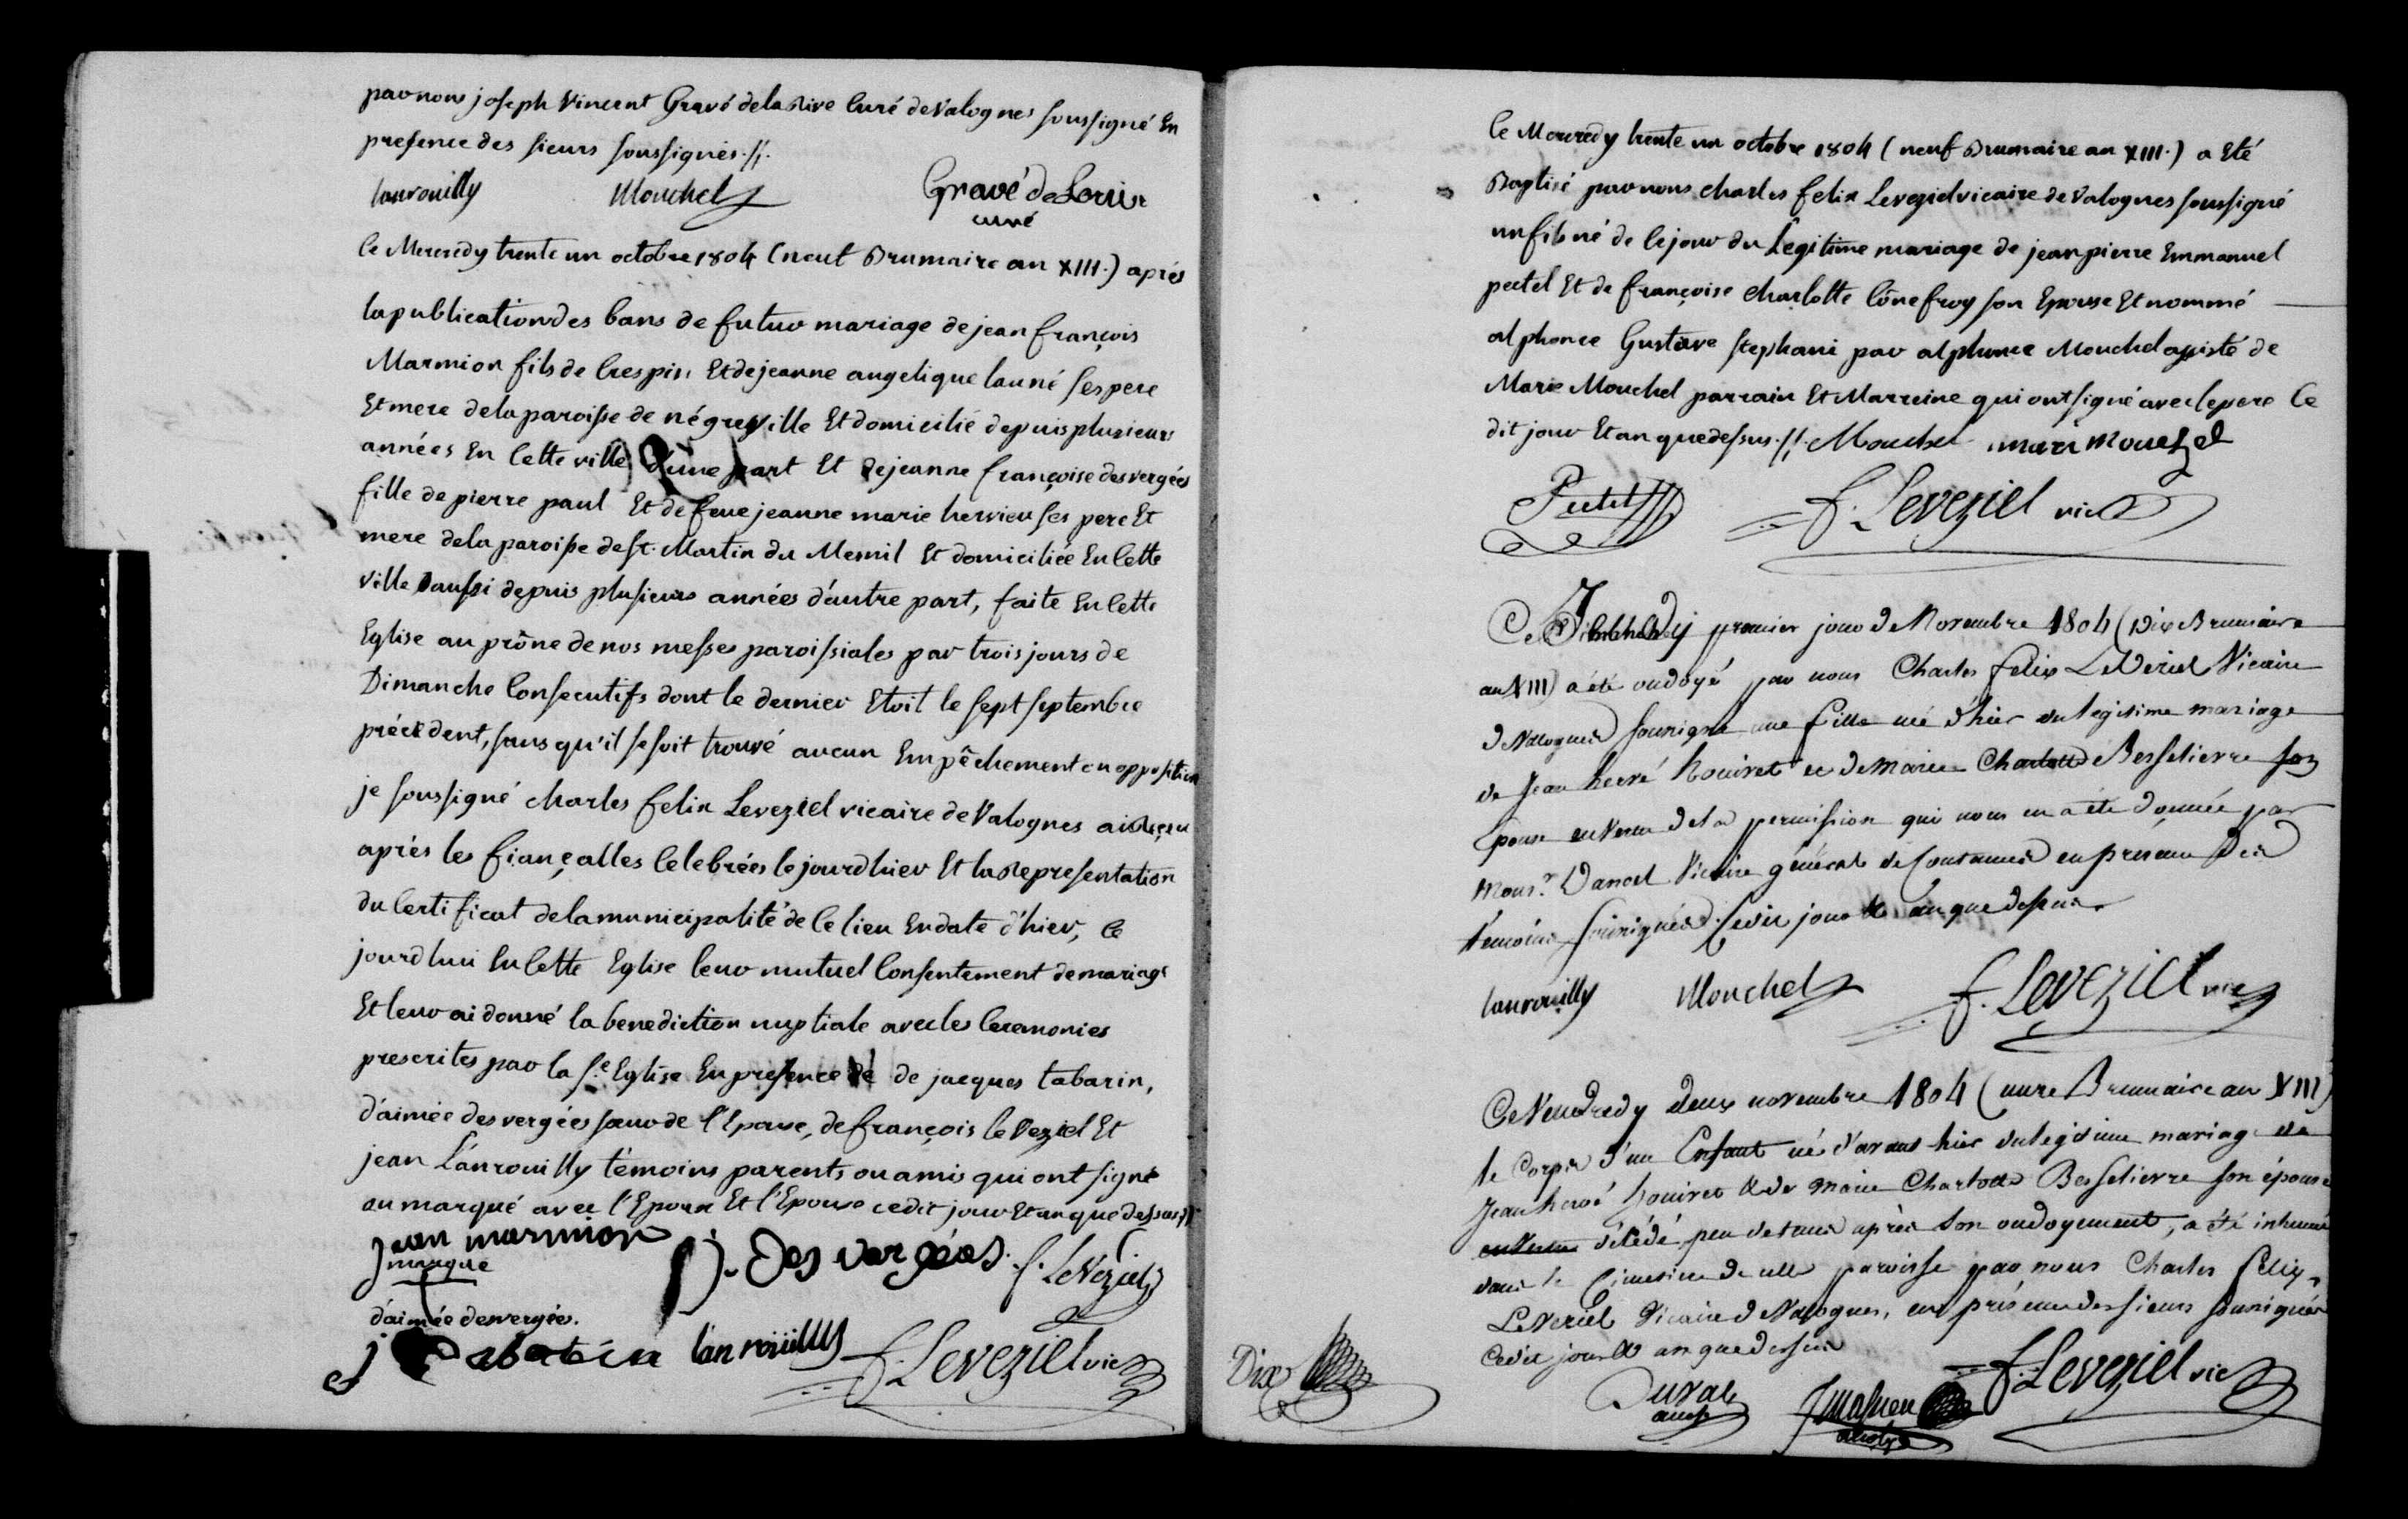 par nous joseph Vincent Gravé de la Rive Curé de Valognes soussigné En
presence des sieurs soussignés.//.
lanrouilly Mouchel Gravé de
curé
le Mercredy trente un octobre 1804 (neuf Brumaire an XIII.) après
la publication des bans de futur mariage de jean françois
Marmion fils de Crespin Et de jeanne angelique launé ses pere
Et mere de la paroisse de négreville Et domicilié depuis plusieurs
années En Cette ville d'une part Et de jeanne françoise desvergées
fille de pierre paul Et de feue jeanne marie hervieu ses pere Et
mere de la paroisse de st. Martin du Mesnil Et domiciliée En Cette
ville aussi depuis plusieurs années d'autre part, faite En Cette
Eglise au prône de nos messes paroissiales par trois jours de
Dimanche Consecutifs dont le dernier Etoit le sept septembre
précédent, sans qu'il se soit trouvé aucun Empêchement ou opposition
je soussigné charles felix Leveziel vicaire de Valognes ai Reçu
après les fiançalles Celebrées le jourd hier Et la Representation
du Certificat de la municipalité de Ce lieu En date d'hier, Ce
jourd hui En Cette Eglise leur mutuel Consentement de mariage
Et leur ai donné la benediction nuptiale avec les Ceremonies
prescrites par la ste Eglise En presence de de jacques tabarin,
d'aimée desvergées sœur de l'Epouse, de françois le Veziel Et
jean Lanrouilly témoins parents ou amis qui ont signé
ou marqué avec l'Epoux Et l'Epouse ce dit jour Et an que dessus.//
jean marmion j. Des vergées. f. LeVeziel
marque
d'aimée desvergées.
j tabarin lanrouilly f. Leveziel vic
le Mercredy trente un octobre 1804 (neuf Brumaire an XIII.) a Eté
Baptisé par nous charles felix Leveziel vicaire de Valognes soussigné
un fils né de Ce jour du Legitime mariage de jean pierre Emmanuel
peetel Et de françoise charlotte Cônefroy son Epouse Et nommé
alphonce Gustave stephani par alphonce Mouchel assisté de
Marie Mouchel parrain Et Marreine qui ont signé avec le pere Ce
dit jour Et an que dessus.//. Mouchel mari mouchel
f. Leveziel vic
Ce Jeudy premier jour de Novembre 1804 (Dix Brumaire
an XIII) a été ondoyé par nous Charles felix LeVeziel Vicaire
de Valognes soussigné une fille né d'hier du légitime mariage
de Jean hervé houivet et de Marie Charlotte Besselievre son
épouse en vertu de la permission qui nous en a été donnée par
Monsr. Vicaire général de Coutances en présence des
témoins soussignés. Cedit jour & an que dessus
lanrouilly Mouchel f. Leveziel vic
Ce Vendredy deux novembre 1804 (onze Brumaire an XIII)
le Corps d'un Enfant né d'avant hier du légitime mariage de
Jean hervé houivet & de Marie Charlotte Besselievre son épouse
décédé peu de tems après son ondoyement, a été inhumé
dans le Cimetiere de cette paroisse par nous Charles felix
LeVeziel Vicaire de Valognes, en présence des sieurs soussignés
Cedit jour & an que dessus
Duval f. Leveziel vic
Dix